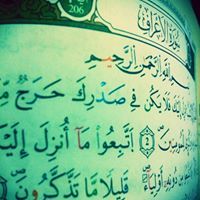 206
سُورَةُ الْأَعْرَافِ
بِسْمِ اللَّهِ الرَّحْمَٰنِ الرَّحِيمِ
فَلَا يَكُن فِي صَدْرِكَ حَرَجٌ
٢ اتَّبِعُوا مَا أُنزِلَ
دُونِهِ أَوْلِيَاءَ قَلِيلًا مَّا تَذَكَّرُونَ